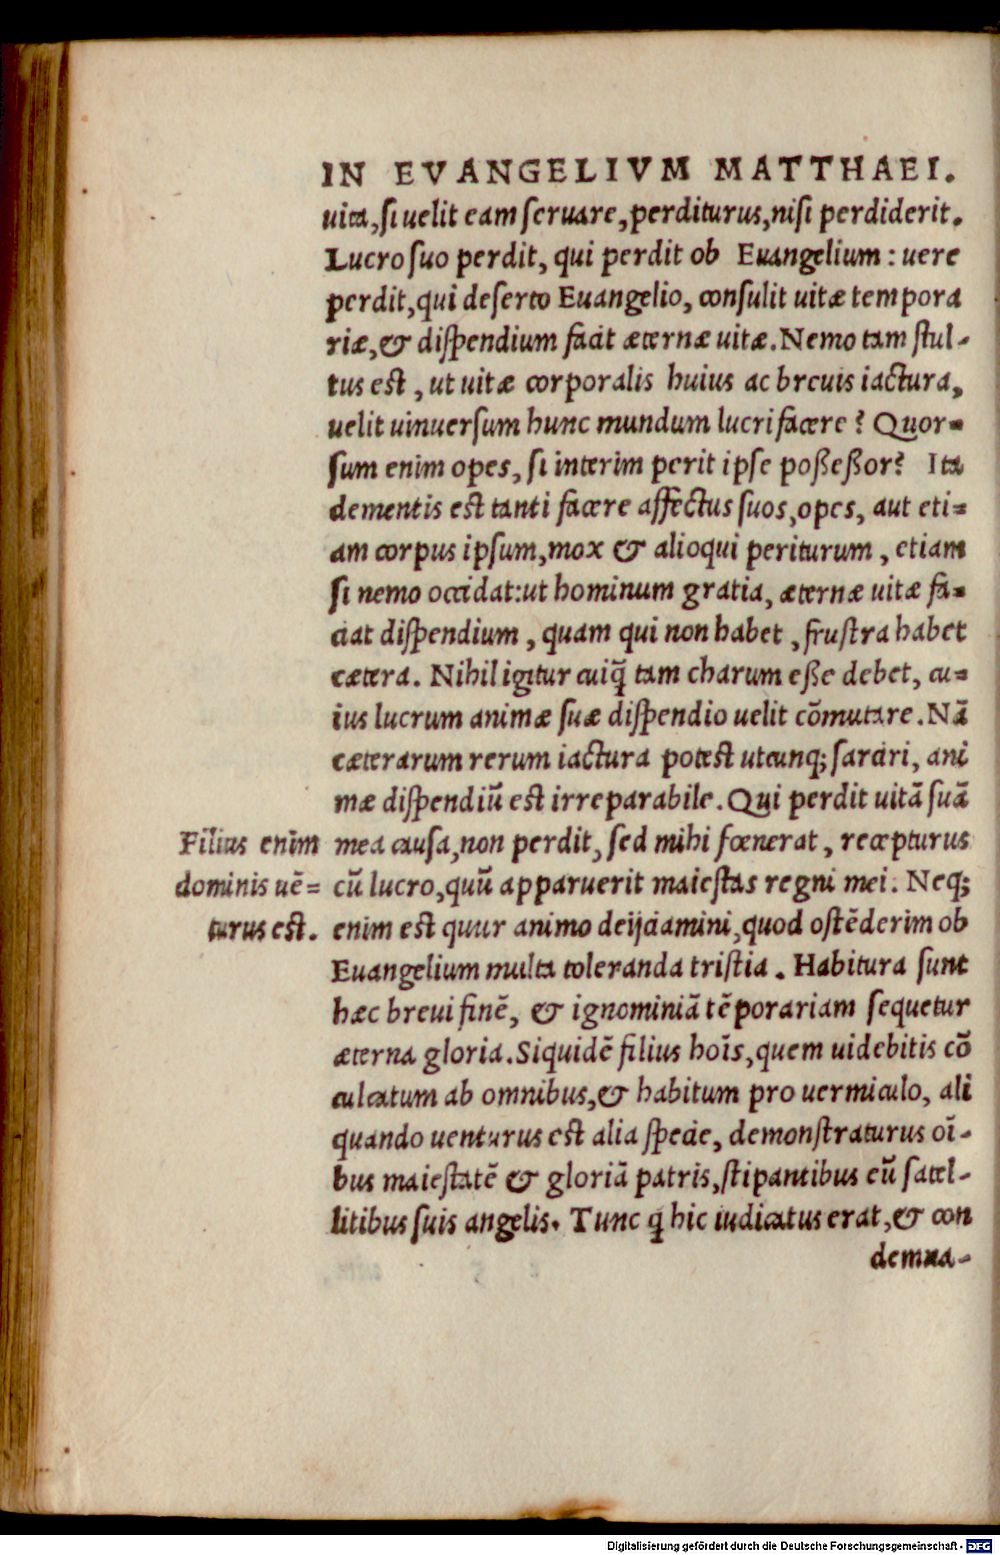 IN EVANGELIVM MATTHAEI.
uita, si uelit eam seruare, perditurus, nisi perdiderit.
Lucro suo perdit, qui perdit ob Euangelium: uere
perdit, qui deserto Euangelio, consulit uitæ tempora
riæ, & dispendium facit æternæ uitæ. Nemo tam stul-
tus est, ut uitæ corporalis huius ac breuis iactura,
uelit uinuersum hunc mundum lucrifacere? Quor-
sum enim opes, si interim perit ipse poßeßor? Ita
dementis est tanti facere affectus suos, opes, aut eti=
am corpus ipsum, mox & alioqui periturum, etiam
si nemo occidat: ut hominum gratia, æternæ uitæ fa=
ciat dispendium, quam qui non habet, frustra habet
cætera. Nihil igitur cuiq̃ tam charum eße debet, cu=
ius lucrum animæ suæ dispendio uelit cõmutare. Nã
cæterarum rerum iactura potest utcunq; sarciri, ani
mæ dispendiũ est irreparabile. Qui perdit uitã suã
Filius enim mea causa, non perdit, sed mihi fœnerat, recepturus
dominis uẽ= cũ lucro, quũ apparuerit maiestas regni mei. Neq;
turus est. enim est quur animo deijciamini, quod ostẽderim ob
Euangelium multa toleranda tristia. Habitura sunt
hæc breui finẽ, & ignominiã tẽporariam sequetur
æterna gloria. Siquidẽ filius hoīs, quem uidebitis cõ
culcatum ab omnibus, & habitum pro uermiculo, ali
quando uenturus est alia specie, demonstraturus oī-
bus maiestatẽ & gloriã patris, stipantibus eũ satel-
litibus suis angelis. Tunc q̃ hic iudicatus erat, & con
demna-
Digitalisierung gefördert durch die Deutsche Forschungsgemeinschaft - DFG